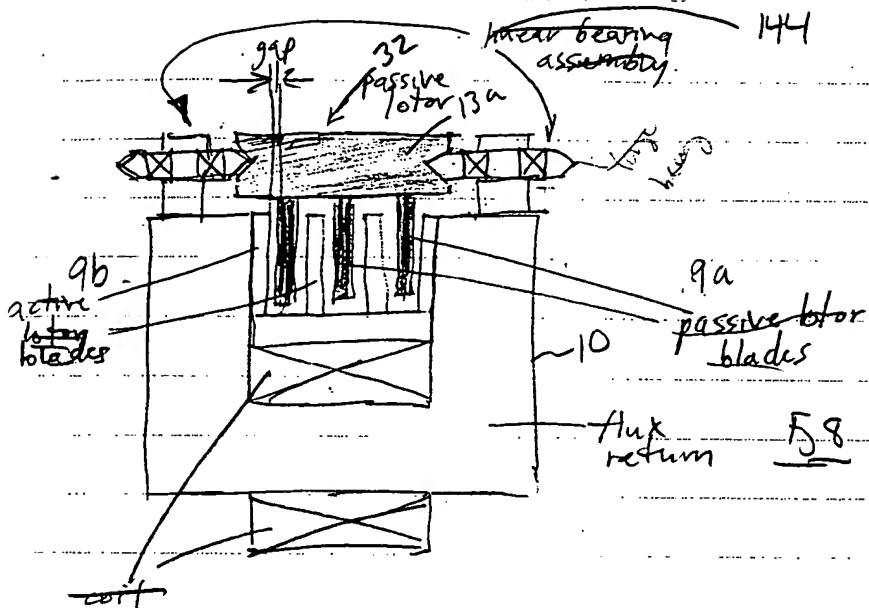 linear bearing
assembly
144
gap
32
passive
lotor 13a
9b
active
blades
9a
passive lotor
blades
10
flux
return
Fig 8
coil